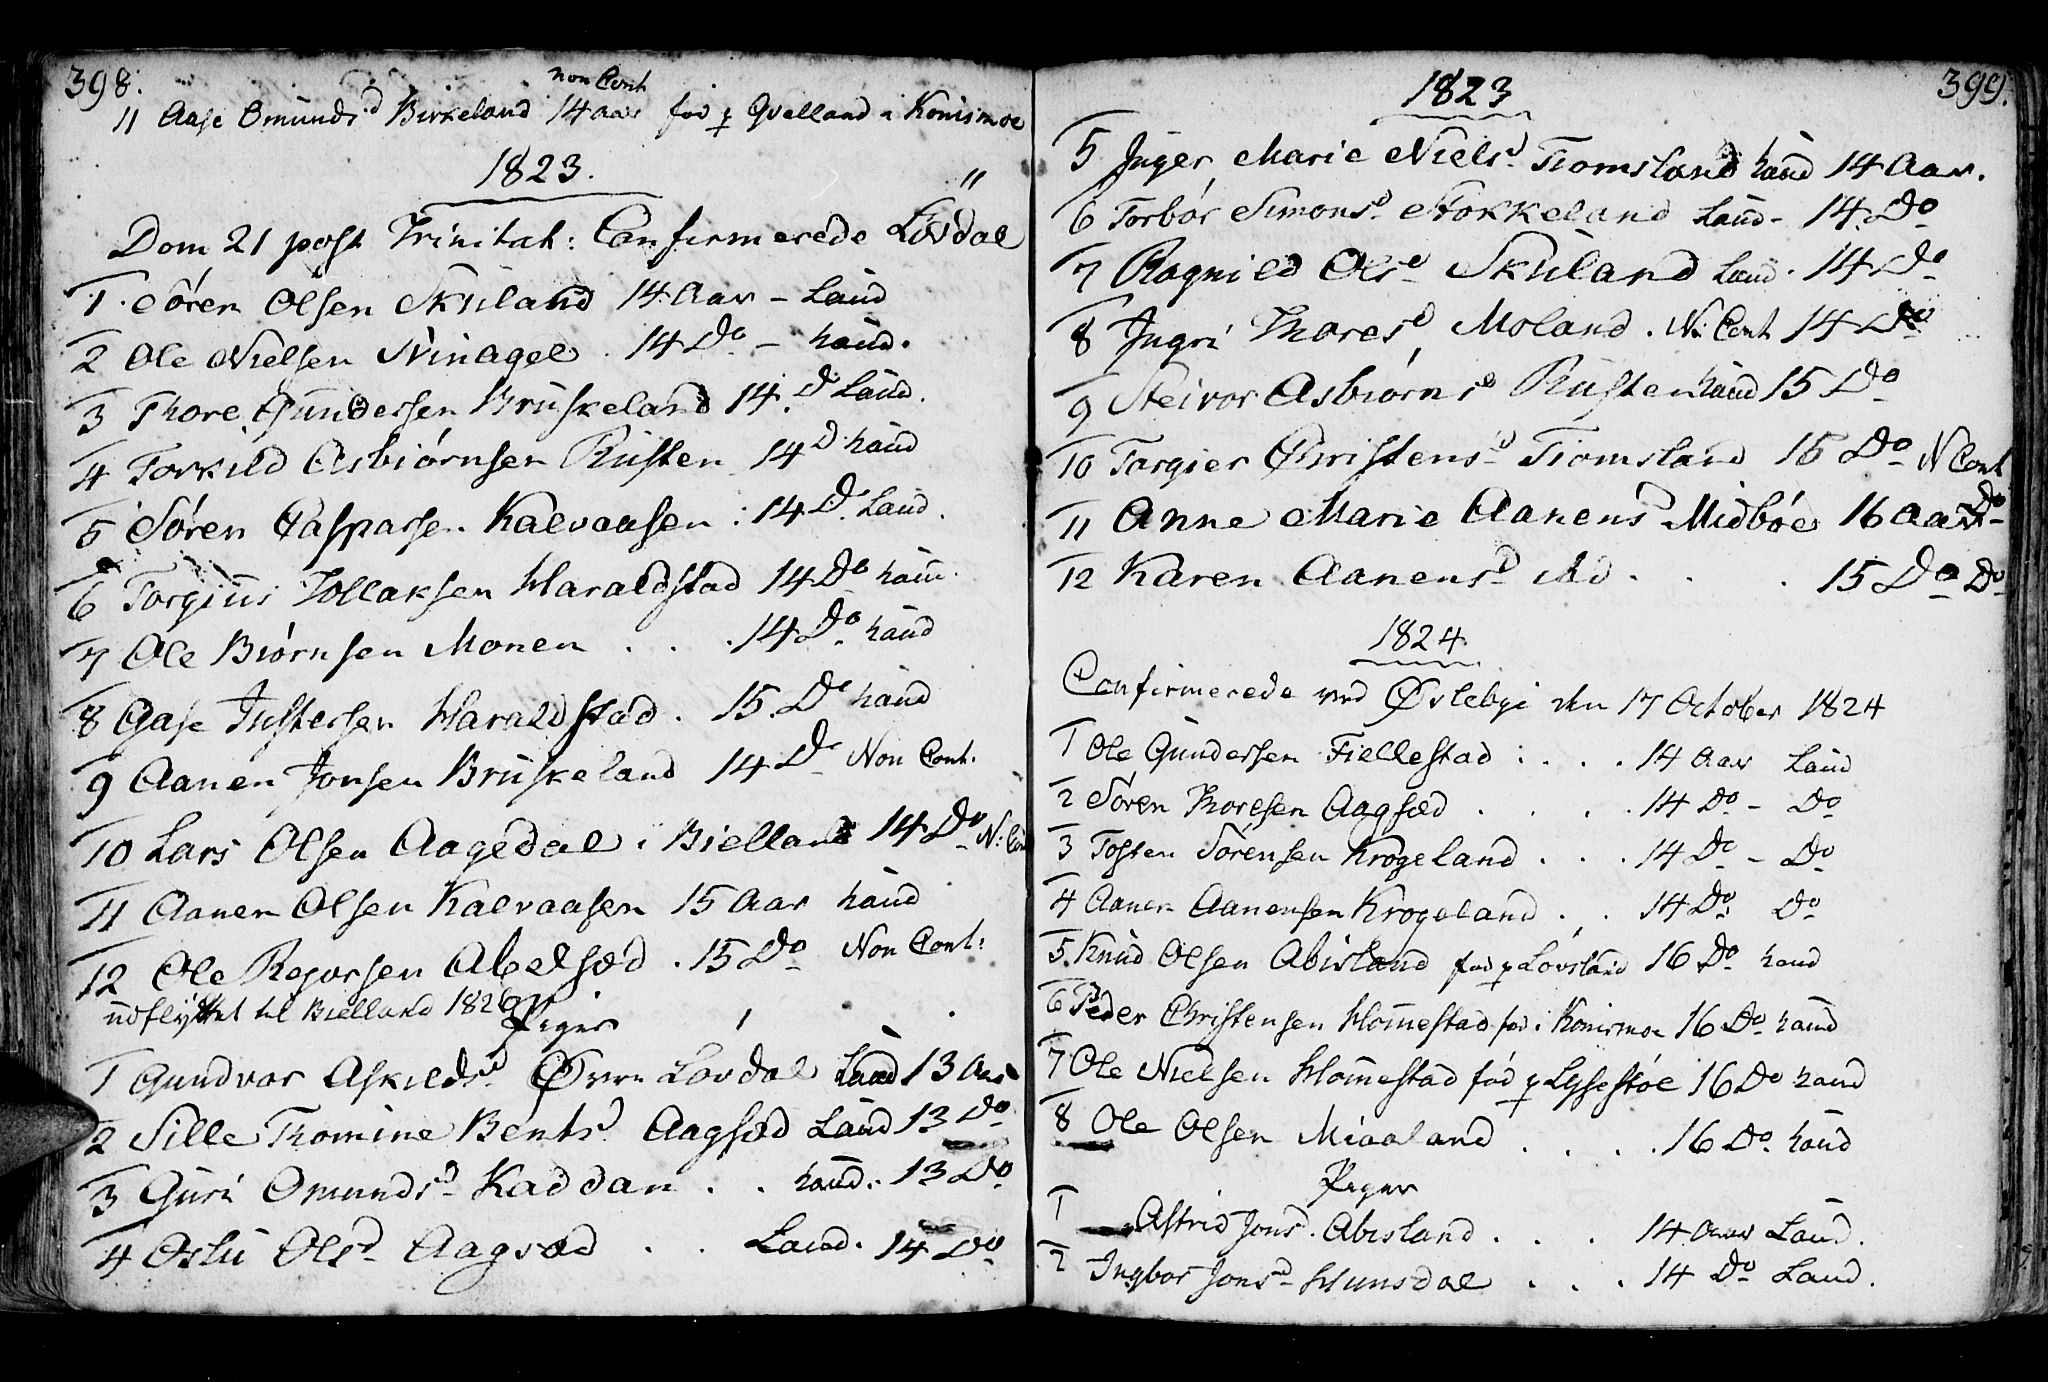 398.
non Cont
11 Aase Omunds.d Birkeland 14 Aar fød p Qvelland i Konismoe
1823.
"
Dom 21 post Trinitat: Confirmerede Løvdal
1. Sören Olsen Skuland 14 Aar - Laud
2 Ole Nielsen Svinagel. 14 Do - haud.
3 Thore Gundersen Bruskeland 14. D Laud.
4 Torkild Asbiørnsen Rusten 14 D haud
5 Søren Casparsen Kalvaasen: 14 D. Laud.
6 Torgius Tollaksen Haraldstad 14 Do haud.
7 Ole Biørnsen Monen . . . 14 Do haud
8 Gase Justersen Haraldstad. 15. D haud
9 Aanen Jonsen Bruskeland 14 D Non Cont.
10 Lars Olsen Aagedal i Bielland 14 Do N: Con
11 Aanen Olsen Kalvaasen 15 Aar haud
12 Ole Regorsen Abelsæd. 15 Do Non Cont:
udflyttet til Bielland 1826
Piger
1 Gundvor Askilds.d Øvre Løvdal Laud 13 Aar
2 Sille Thomine Bentsd Aagsæd Laud 13 Do
3 Guri Omundsd Kaddan . . haud. 13 Do
4 Oslu Olsd Aagsæd . . Laud. 14 Do
1823
399.
5 Inger Marie Nielsd Tiomsland haud 14 Aar.
6 Torbør Simonsd Stokkeland Laud - 14. Do
7 Ragnild Olsd Skuland Laud. 14 Do
8 Ingri Thoresd Moland. N: Cont 14 Do
9 Steivor Asbiørnsd Rusten haud 15 Do
10 Torgier Christensd Tiomsland 15 Do N Cont
11 Anne Marie Aanensd Midbøe 16 Aar Do
12 Karen Aanensd ibd . . . 15 Do Do
1824
Confirmerede ved Øslebye den 17 October 1824
1 Ole Gundersen Fiellestad : . . . 14 Aar Laud
2 Søren Thoresen Aagsæd . . . . 14 Do - Do
3 Tosten Sörensen Krogeland . . . 14 Do - Do
4 Aanen Aanensen Krogeland . . 14 Do. Do
5. Knud Olsen Abisland fød p Løvsland 16 Do. haud
6 Peder Christensen Homestad fød i Konismoe 16 Do haud
7 Ole Nielsen Homestad fød p Lyssestøe 16 Do haud
8 Ole Olsen Miaaland . . . . 16 Do. haud
Piger
1 Astrid Jonsd. Abisland . . . 14 Aar Laud.
2 Ingbor Jonsd Hunsdal . . . 14 Do Laud.